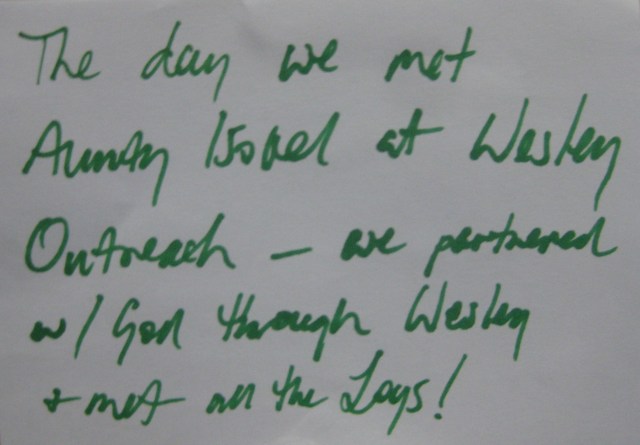 The day we met
Aunty Isobel at Wesley
Outreach — we partnered
w/ God through Wesley
+ met all the Joys!